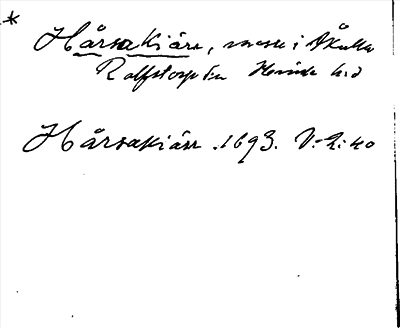 * Hårsakiärr, mosse i Åkulla
Rolfstorps sn Himle hd
Hårsakiärr. 1693. V:2:40